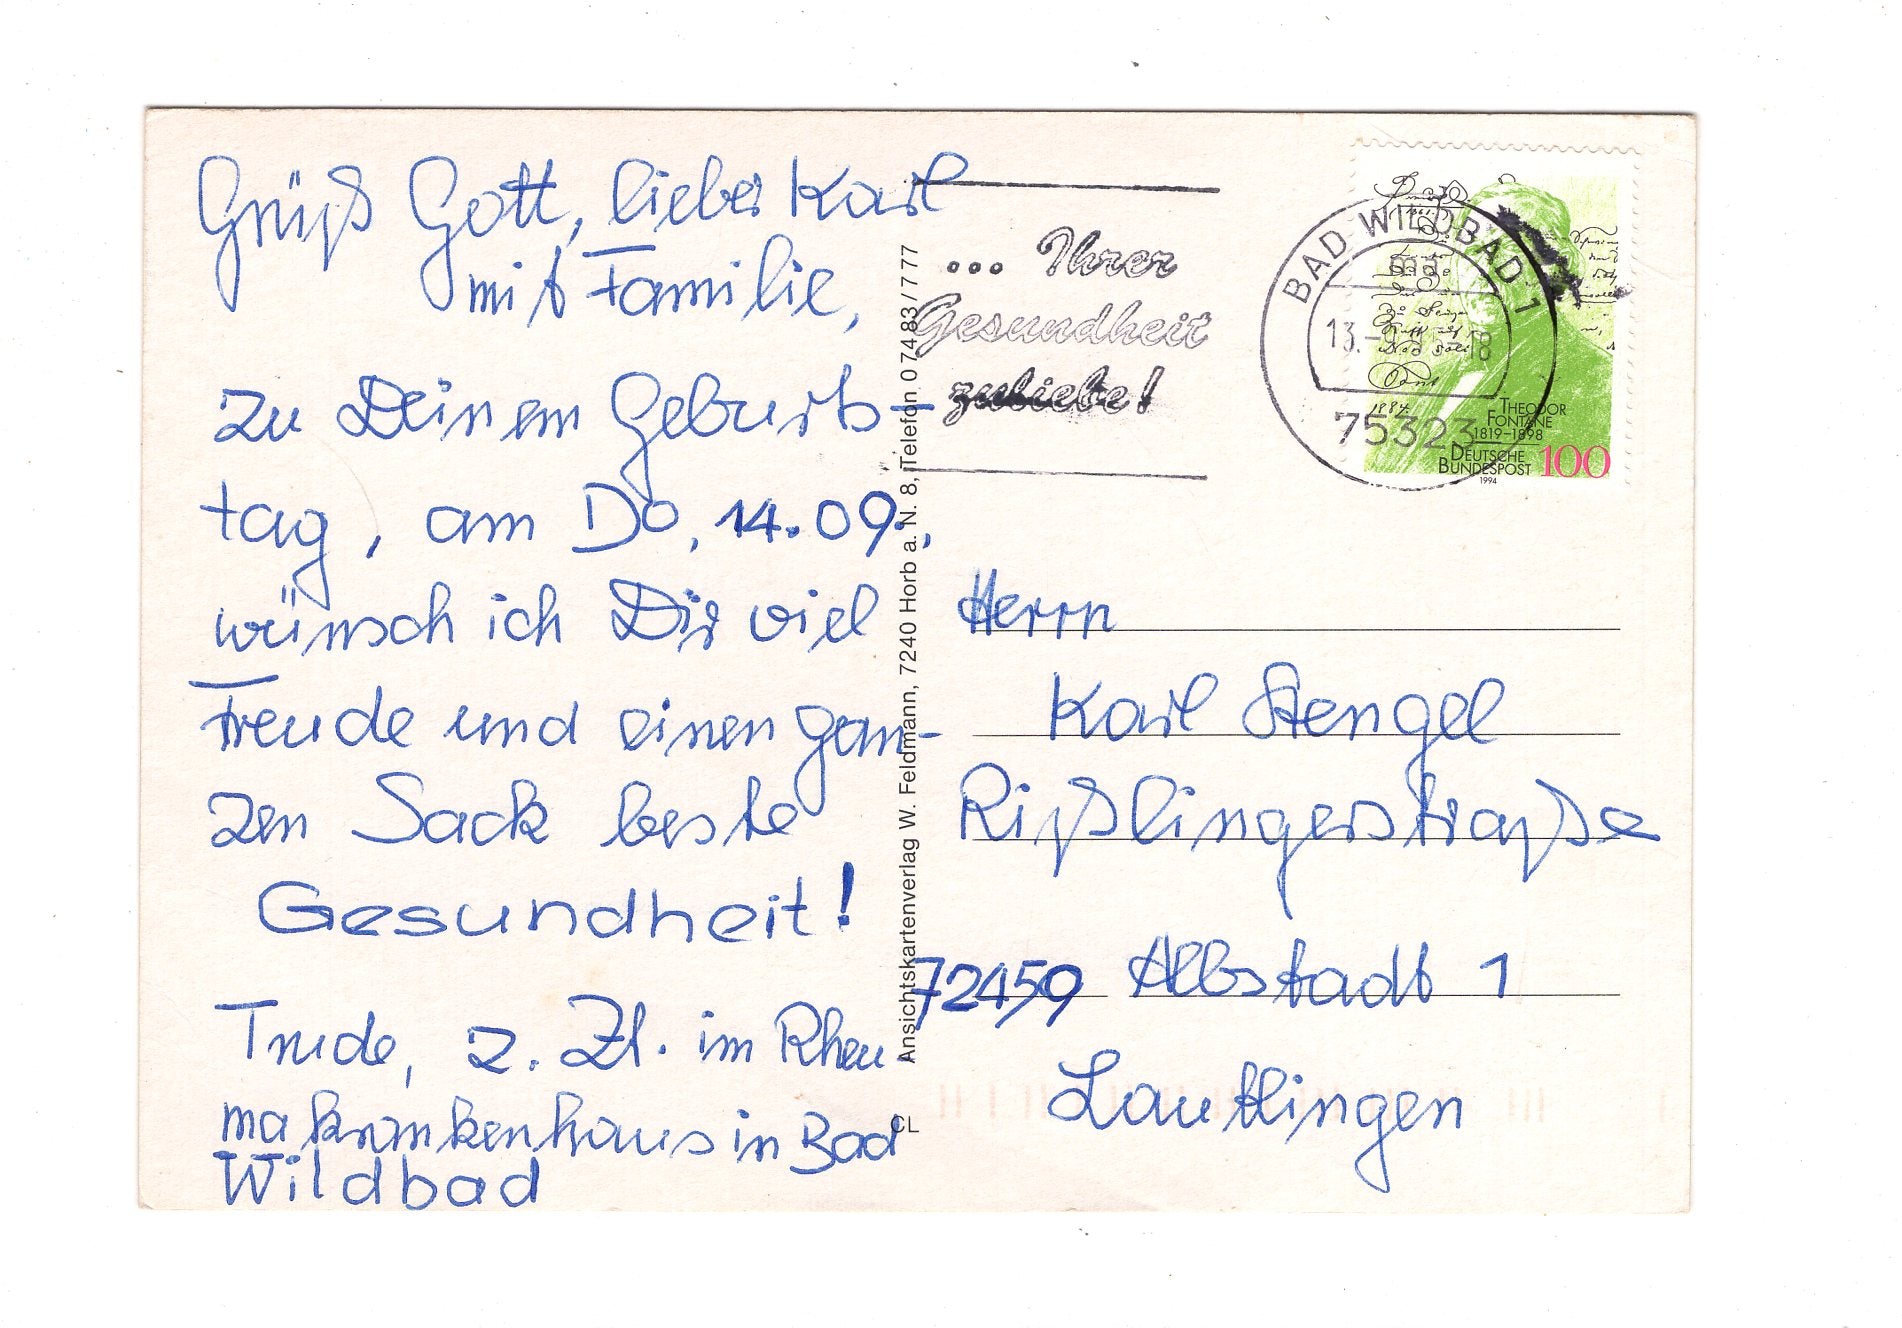 Grüß Gott, lieber Karl
mit Familie,
zu Deinem Geburts-
tag, am Do, 14.09.,
wünsch ich Dir viel
Freude und einen gan-
zen Sack beste
Gesundheit!
Trude, z. Zt. im Rheu
makrankenhaus in Bad
Wildbad
Ansichtskartenverlag W. Feldmann, 7240 Horb a. N. 8, Telefon 07483/777
CL
... Ihrer
Gesundheit
zuliebe!
BAD WILDBAD 1
75323
THEODOR
FONTANE
1819-1898
DEUTSCHE
BUNDESPOST
100
1994
Herrn
Karl Stengel
Rißlingerstraße
72459 Albstadt 1
Lautlingen